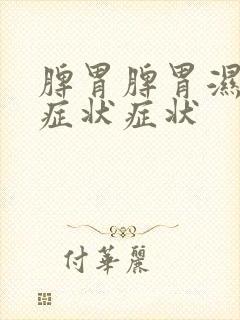 脾胃脾胃濕
症状症状
付華麗